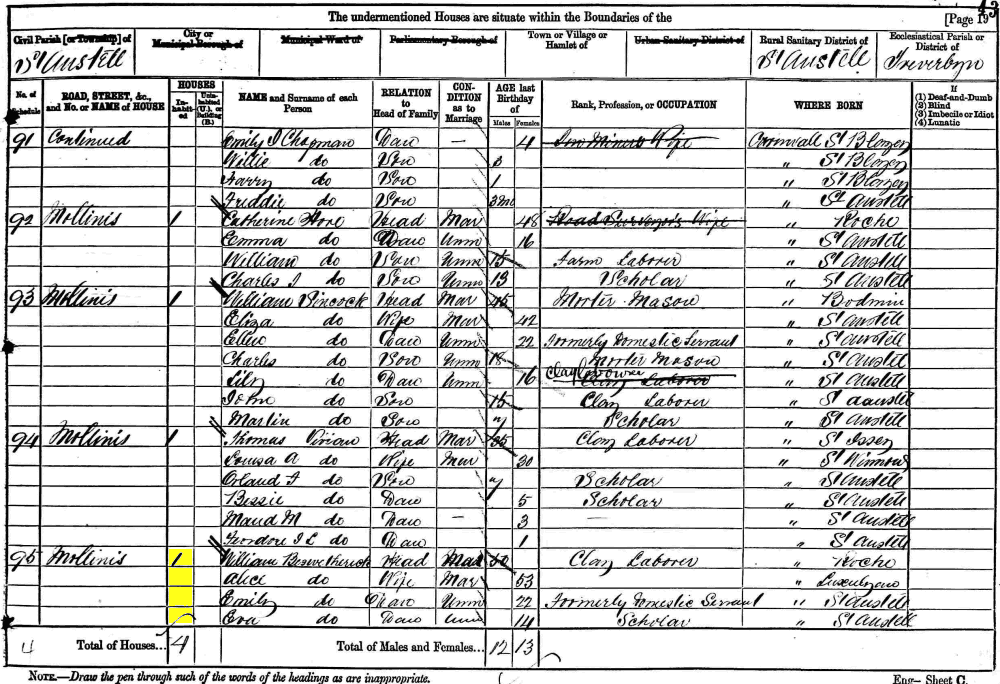 43
The undermentioned Houses are situate within the Boundaries of the [Page 19
Civil Parish [or Township] of City or Municipal Borough of Municipal Ward of Parliamentary Borough of Town or Village or Hamlet of Urban Sanitary District of Rural Sanitary District of Ecclesiastical Parish or District of
St Austell St Austell Treverbyn
No. of Schedule ROAD, STREET, &c., and No. or NAME of HOUSE HOUSES Inhabited Uninhabited (U.), or Building (B.) NAME and Surname of each Person RELATION to Head of Family CONDITION as to Marriage AGE last Birthday of Males Females Rank, Profession, or OCCUPATION WHERE BORN If (1) Deaf-and-Dumb (2) Blind (3) Imbecile or Idiot (4) Lunatic
91 Continued Emily J Chapman Daur — 4 Cornwall St Blazey
Willie do Son 3 " St Blazey
Harry do Son 1 " St Blazey
Freddie do Son 3mo " St Austell
92 Mollinis 1 Catherine Hore Head Mar 48 Road Surveyor's Wife " Roche
Emma do Daur Unm 16 " St Austell
William do Son Unm 15 Farm Laborer " St Austell
Charles J do Son Unm 13 Scholar " St Austell
93 Mollinis 1 William Pincock Head Mar 45 Morter Mason " Bodmin
Eliza do Wife Mar 42 " St Austell
Ellen do Daur Unm 22 Formerly Domestic Servant " St Austell
Charles do Son Unm 18 Morter Mason " St Austell
Lily do Daur Unm 16 Clay Laborer " St Austell
John do Son 15 Clay Laborer " St Austell
Martin do Son 7 Scholar " St Austell
94 Mollinis 1 Thomas Vivian Head Mar 35 Clay Laborer " St Issey
Louisa A do Wife Mar 30 " St Winnow
Orland J do Son 7 Scholar " St Austell
Bessie do Daur 5 Scholar " St Austell
Maud M do Daur — 3 — " St Austell
do Daur 1 " St Austell
95 Mollinis 1 William Head Mar 50 Clay Laborer " Roche
Alice do Wife Mar 53 " Luxulyan
Emily do Daur Unm 22 Formerly Domestic Servant " St Austell
Eva do Daur Unm 14 Scholar " St Austell
4 Total of Houses... 4 Total of Males and Females... 12 13
NOTE.—Draw the pen through such of the words of the headings as are inappropriate. Eng— Sheet C.